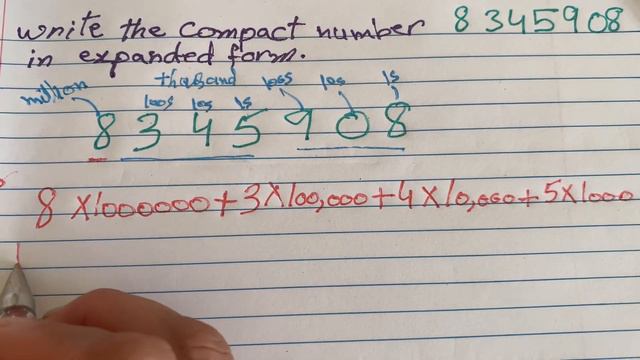 write the compact number 8345908
in expanded form.
million thousand 100s 10s 1s
100s 10s 1s
8 3 4 5 9 0 8
8 x 1000000 + 3 x 100,000 + 4 x 10,000 + 5 x 1000